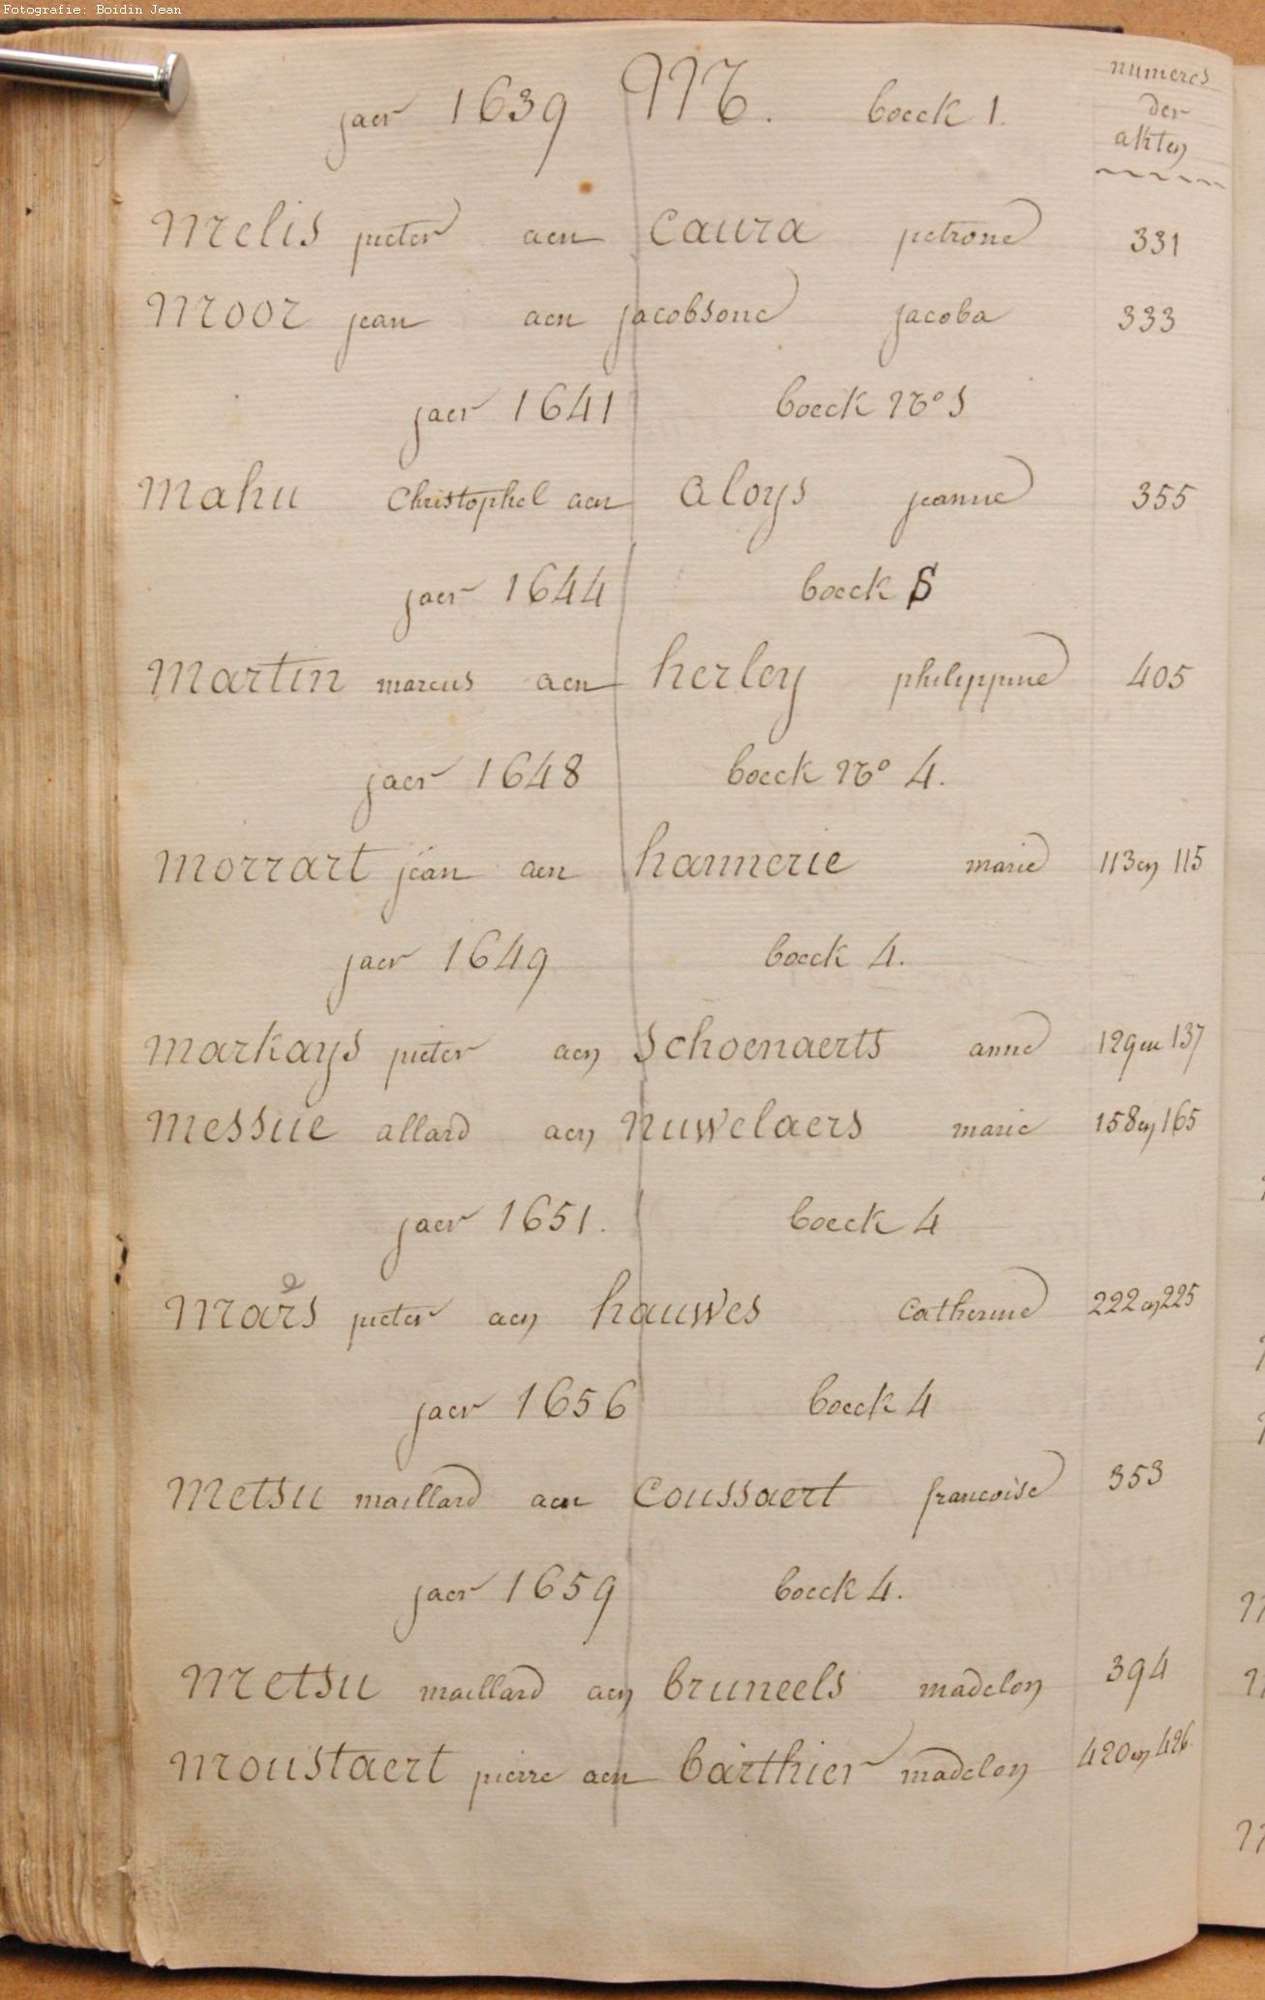 Fotografie: Boidin Jean
jaer 1639 M. boeck 1. numeros
der
akten
Melis pieter aen Caura petrone 331
Moor jean aen jacobsone jacoba 333
jaer 1641 boeck No 1
Mahu Christophel aen aloys jeanne 355
jaer 1644 boeck
Martin marcus aen herley philippine 405
jaer 1648 boeck No 4.
morrart jean aen hannerie marie 113 en 115
jaer 1649 boeck 4.
markays pieter aen Schoenaerts anne 129 en 137
Messue allard aen nuwelaers marie 158 en 165
jaer 1651. boeck 4
Maes pieter aen hauwes Catherine 222 en 225
jaer 1656 boeck 4
Metsu maillard aen Coussaert francoise 353
jaer 1659 boeck 4.
Metsu maillard aen bruneels madelon 394
Moustaert pierre aen barthier madelon 420 en 426.